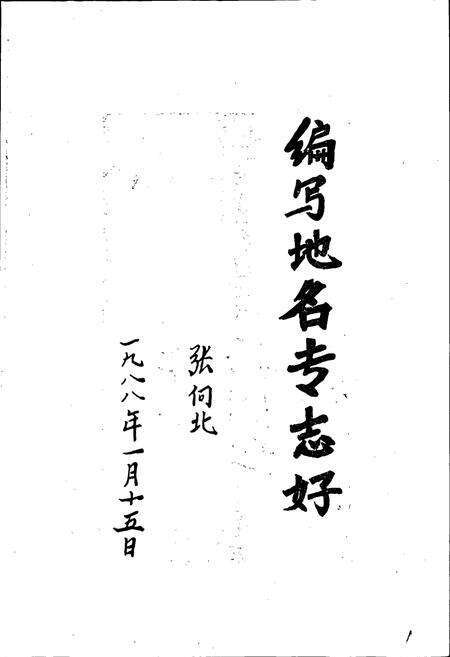 编写地名专志好
张向北
一九八八年一月十五日
1